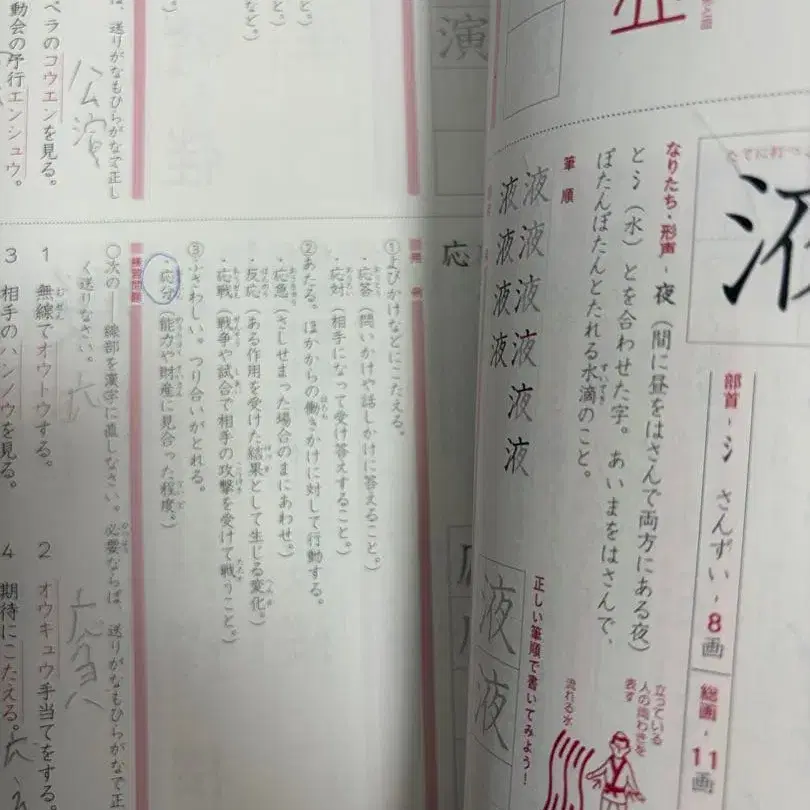 部首・氵 さんずい・8画
総画・11画
なりたち・形声・夜(間に昼をはさんで両方にある夜)
と氵(水)とを合わせた字。あいまをはさんで、
ぽたんぽたんとたれる水滴のこと。
筆順
液液液液液
液液液液液
立っている
人の両わきを
表す
流れる水
正しい筆順で書いてみよう!
液液
演
応
用例
①よびかけなどにこたえる。
・応答(問いかけや話しかけに答えること。)
・応対(相手になって受け答えすること。)
②あたる。ほかからの働きかけに対して行動する。
・応急(さしせまった場合のまにあわせ。)
・反応(ある作用を受けた結果として生じる変化。)
・応戦(戦争や試合で相手の攻撃を受けて戦うこと。)
③ふさわしい。つり合いがとれる。
・応分(能力や財産に見合った程度。)
練習問題
○次の――線部を漢字に直しなさい。必要ならば、送りがなもひらがなで正
く送りなさい。
1 無線でオウトウする。
2 オウキュウ手当てをする。
3 相手のハンノウを見る。
4 期待にこたえる。
ば、送りがなもひらがなで正し
公演
ペラのコウエンを見る。
動会の予行エンシュウ。